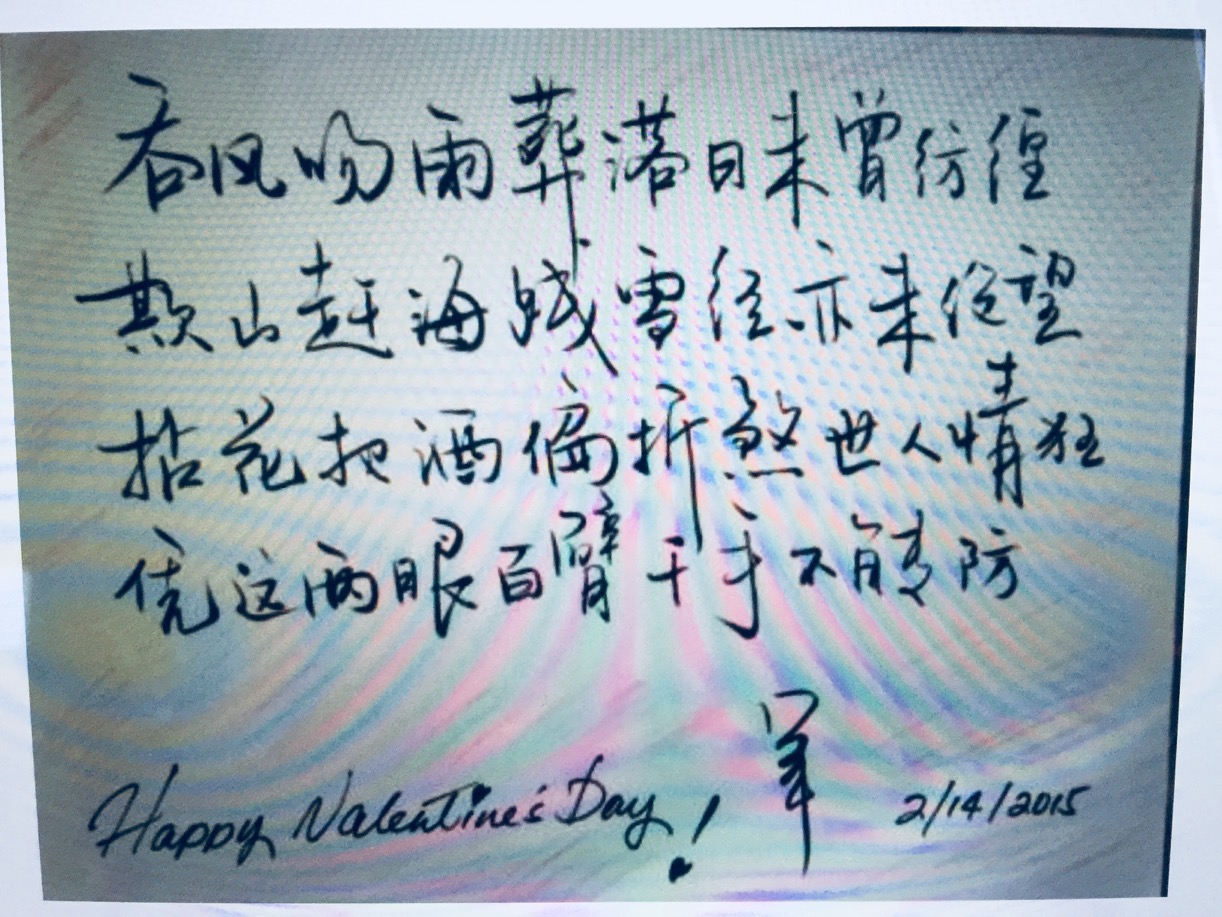 吞风吻雨葬落日未曾彷徨
欺山赶海践雪径亦未绝望
拈花把酒偏折煞世人情狂
凭这两眼百臂千手不能防
Happy Valentine's Day!
2/14/2015